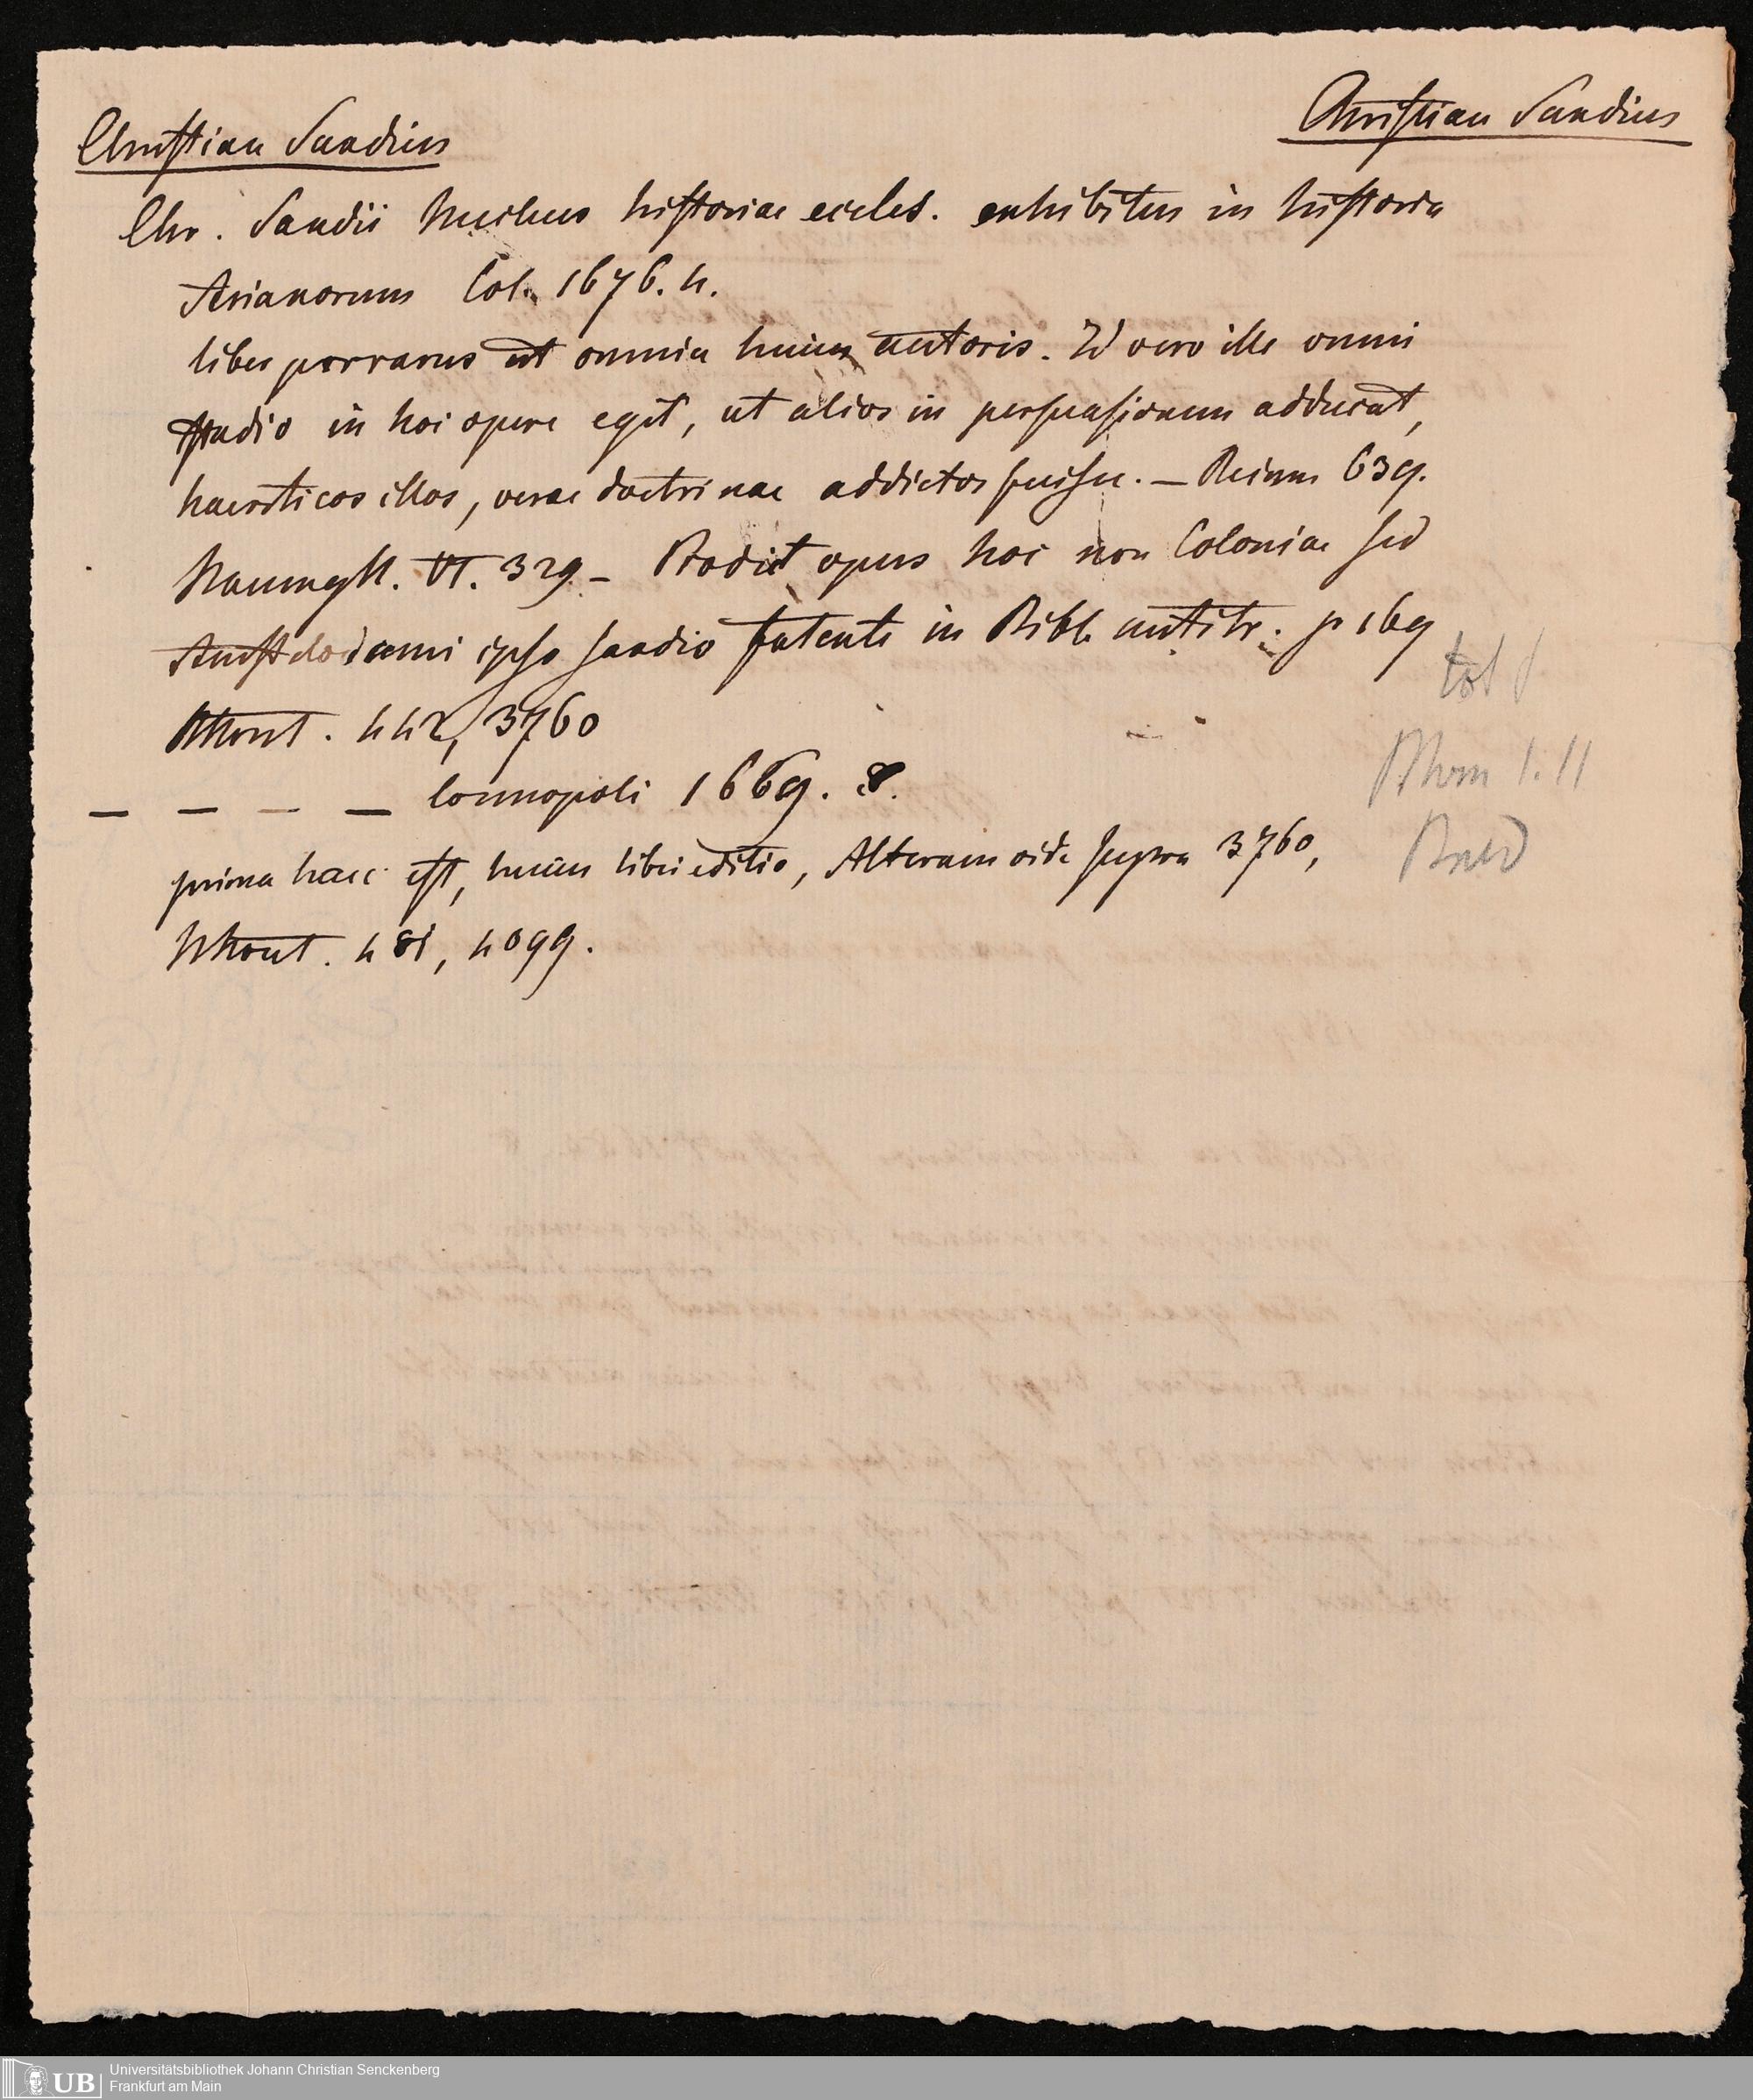 Christian Sandius
Christian Sandius
Chr. Sandii Nucleus historiae eccles. exhibitus in historia
Arianorum Col. 1676. 4.
liber perrarus ut omnia huius autoris. Id vero ille omni
studio in hoc opere egit, ut alios in persuasionem adducat,
haereticos illos, verae doctrinae addictos fuisse. — Reimm 639.
Baumgtt. VI. 329 — Prodiit opus hoc non Coloniae sed
Amstelodami ipso Sandio fatente in Bibl. antitr. p 169
442, 3760
— — — — Cosmopoli 1669. 8.
prima haec est, huius libri editio, Alteram vide supra 3760,
481, 4099.
Universitätsbibliothek Johann Christian Senckenberg
Frankfurt am Main
UB